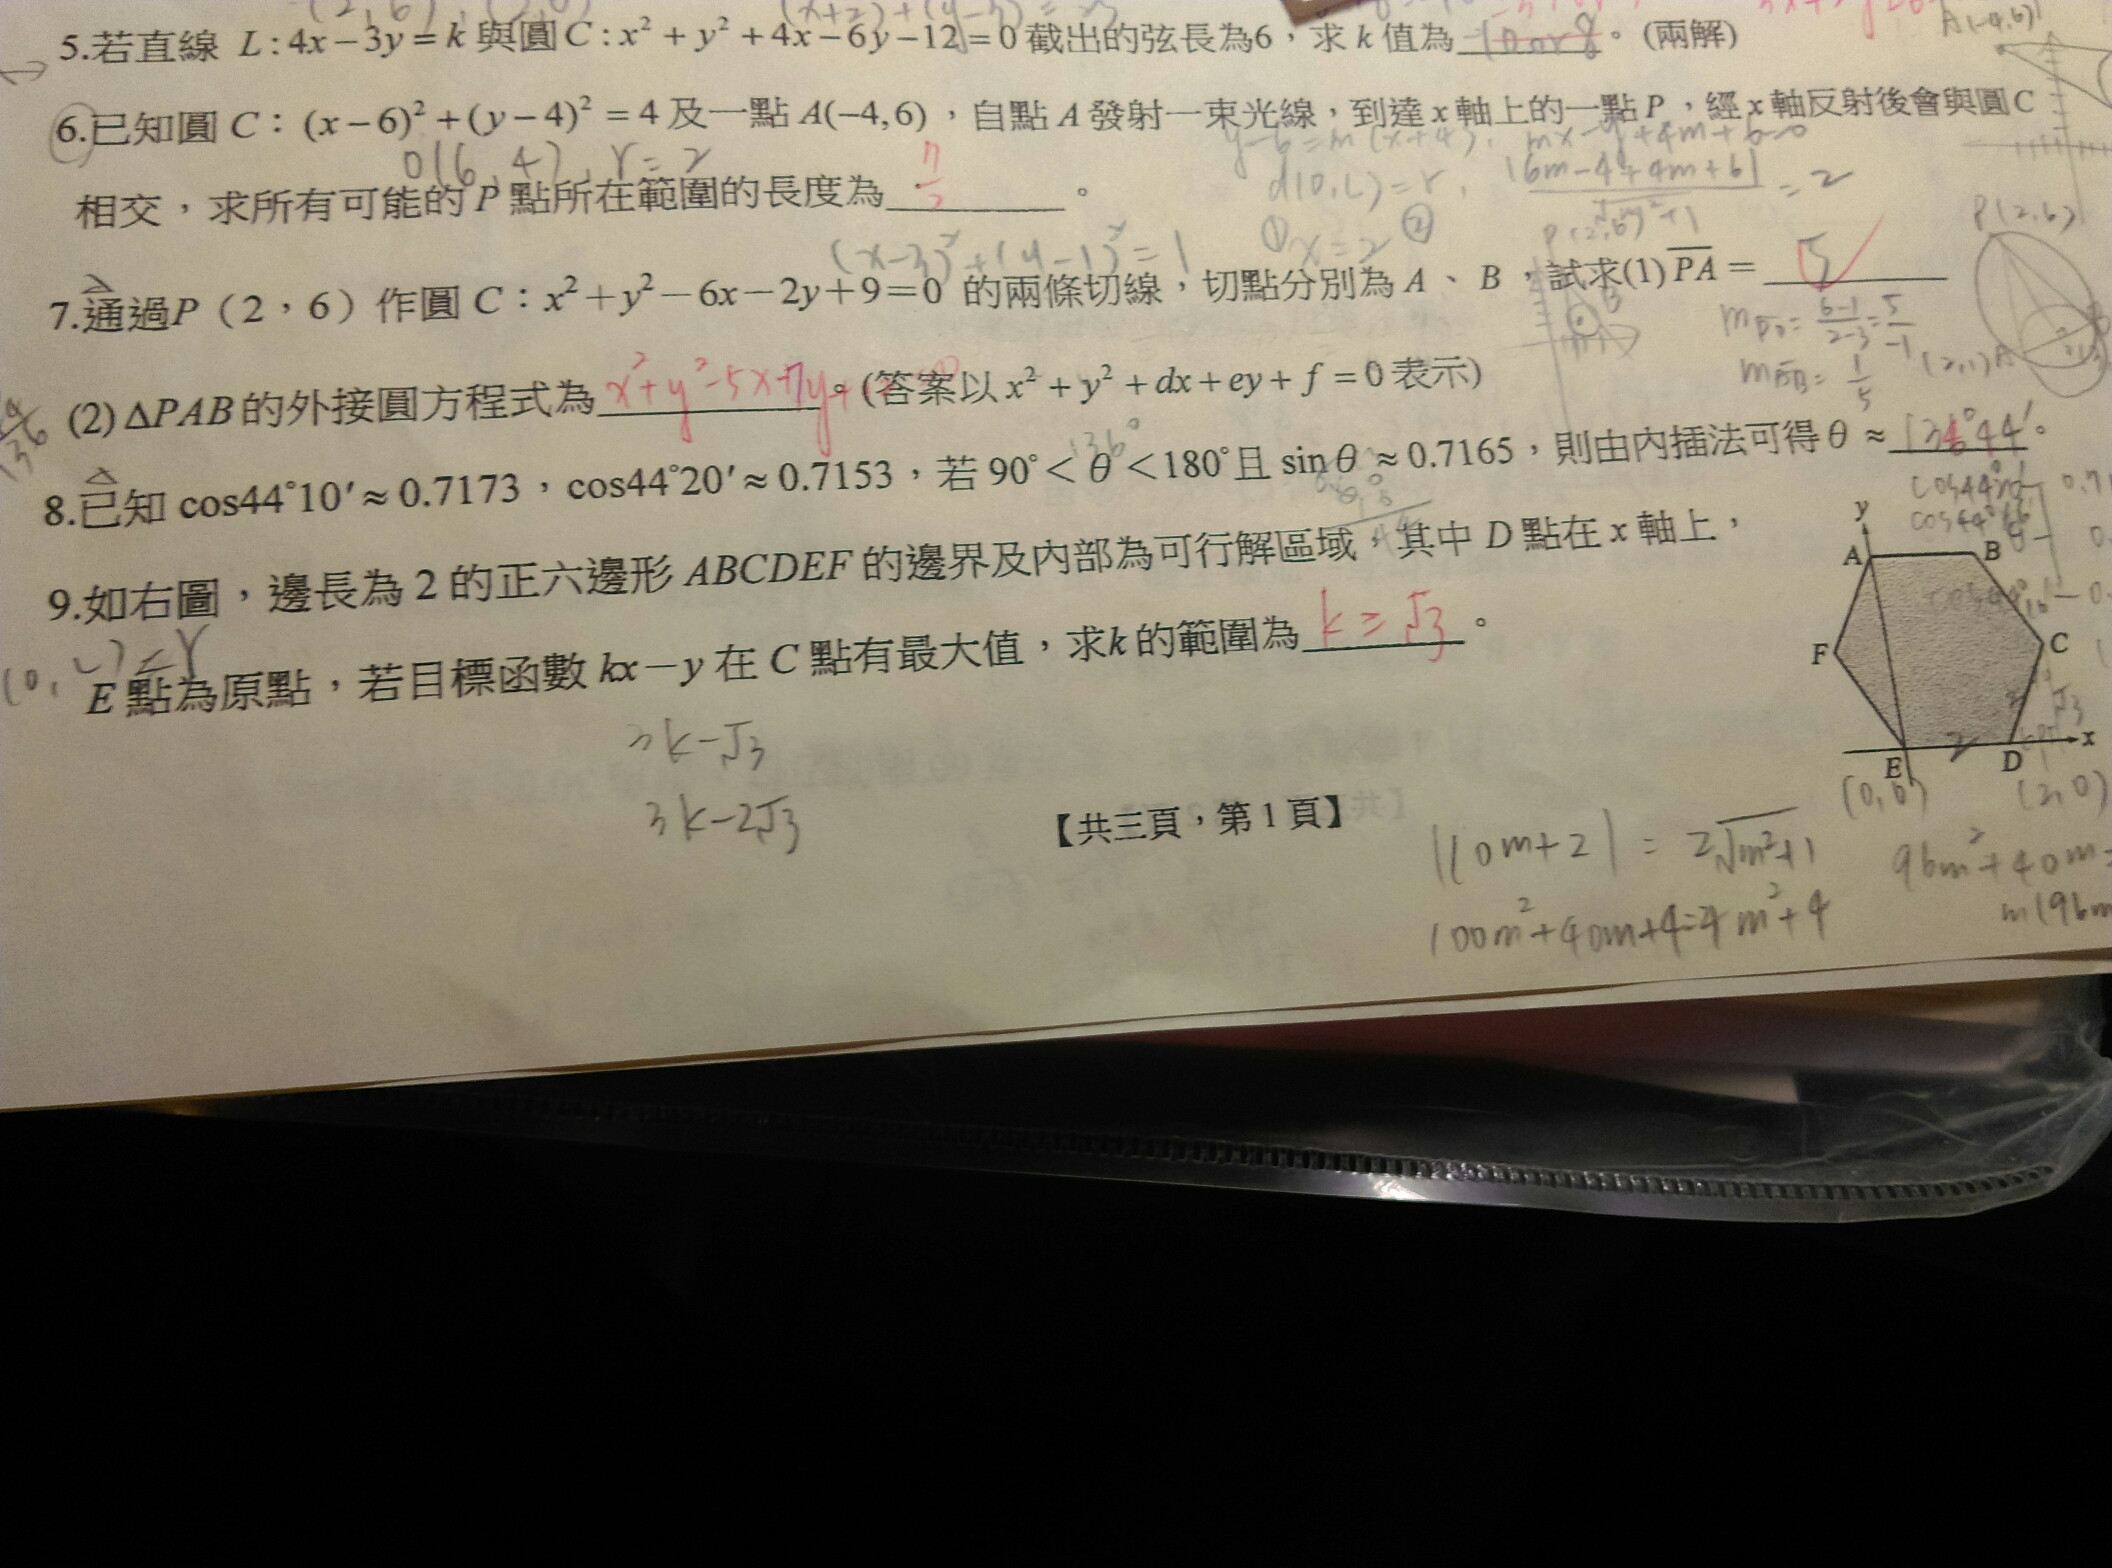 5.若直線 L:4x−3y=k 與圓C:x²+y²+4x−6y−12=0 截出的弦長為6，求 k 值為 10 or 8 。(兩解)
A(-4,6)
6.已知圓 C：(x−6)²+(y−4)²=4 及一點 A(−4,6)，自點 A 發射一束光線，到達 x 軸上的一點 P，經 x 軸反射後會與圓C
O(6,4), r=2
y-6=m(x+4), mx-y+4m+6=0
相交，求所有可能的 P 點所在範圍的長度為 。
d(O,L)=r, |6m-4+4m+6| / √m²+1 = 2
(x-3)²+(y-1)²=1
① x=2 ②
P(2,6)
P(2,6)
7.通過P（2，6）作圓 C：x²+y²−6x−2y+9=0 的兩條切線，切點分別為 A、B，試求(1) PA = 5
B
mPO = 6-1/2-3 = 5/-1
mAB = 1/5
(2,1)A
(2) ΔPAB 的外接圓方程式為 x²+y²-5x+7y+ 。(答案以 x²+y²+dx+ey+f=0 表示)
136°
8.已知 cos44°10′≈0.7173，cos44°20′≈0.7153，若 90°<θ<180°且 sinθ≈0.7165，則由內插法可得 θ ≈ 134°44′。
9.如右圖，邊長為 2 的正六邊形 ABCDEF 的邊界及內部為可行解區域，其中 D 點在 x 軸上，
E 點為原點，若目標函數 kx−y 在 C 點有最大值，求k 的範圍為 k≥√3 。
y
A
B
F
C
√3
2
E
D
x
(0,0)
(2,0)
3k-√3
3k-2√3
【共三頁，第 1 頁】
|10m+2| = 2√m²+1
96m²+40m=
100m²+40m+4=4m²+4
m(96m